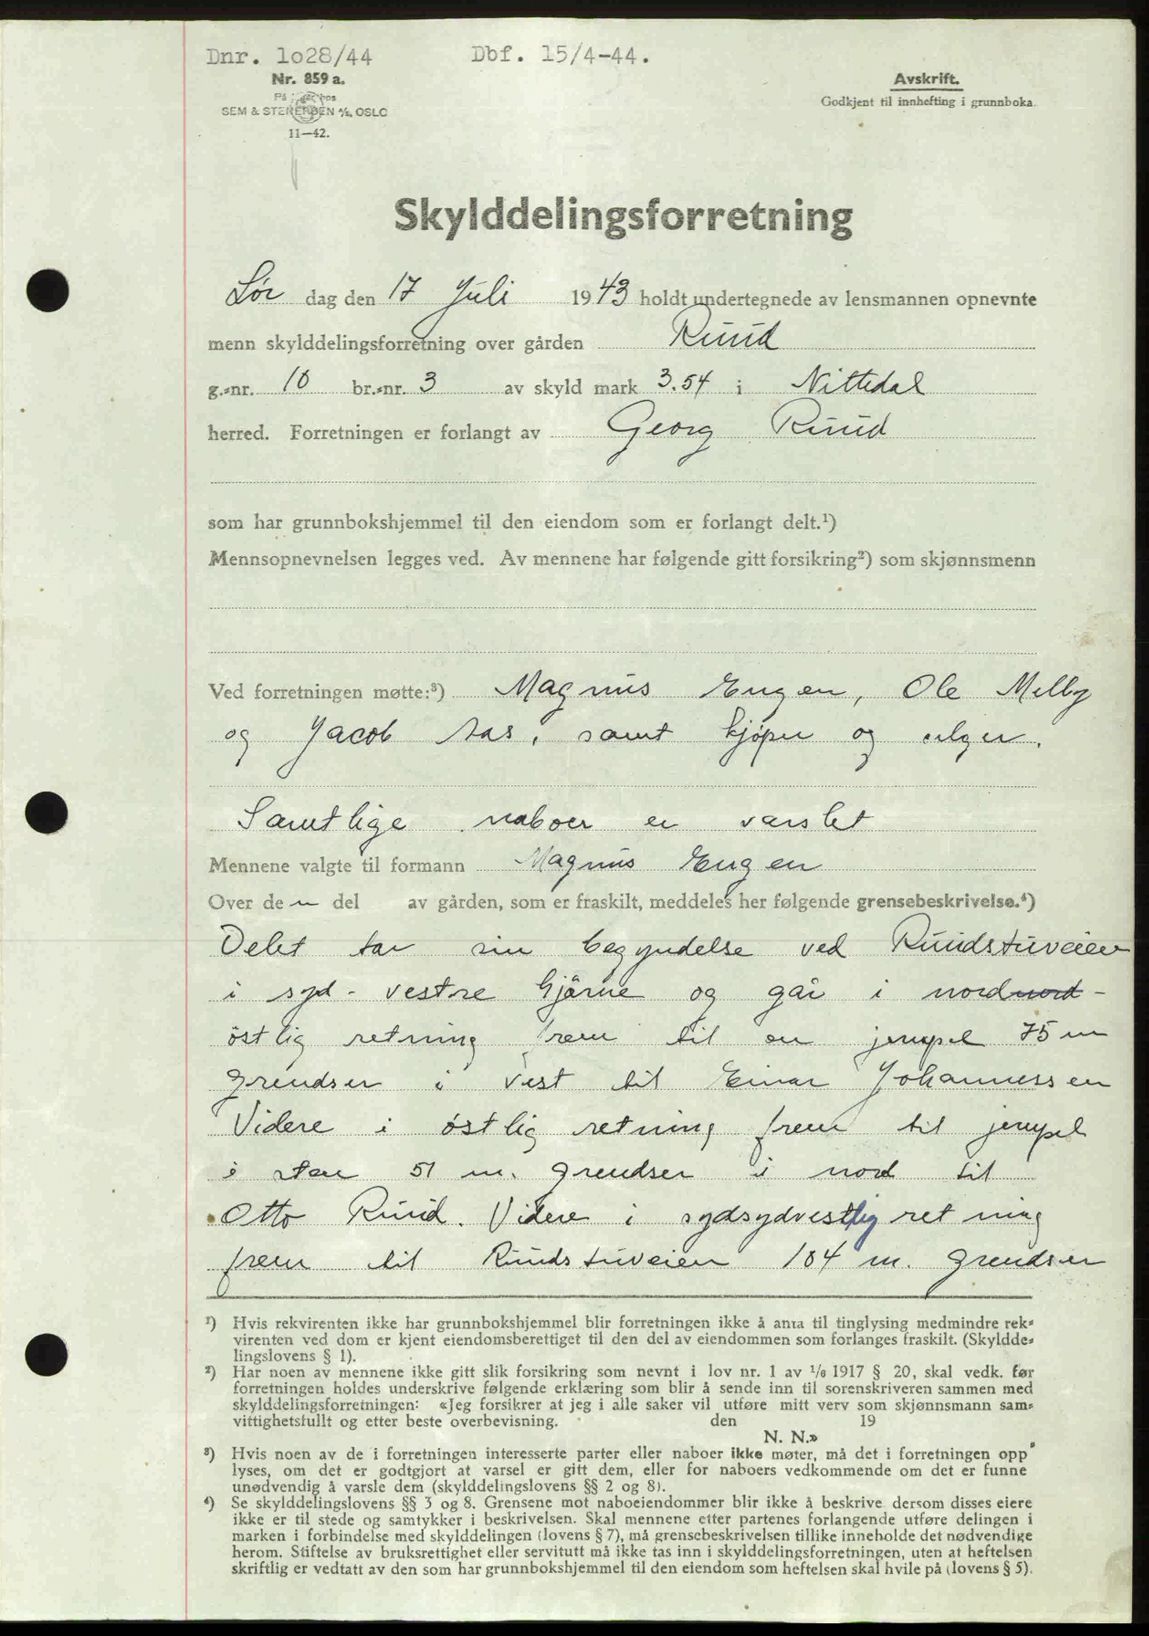 Dnr. 1o28/44 Dbf. 15/4-44.
Nr. 859 a.
SEM & STENERSEN A/S, OSLO
11—42.
Avskrift.
Godkjent til innhefting i grunnboka.
Skylddelingsforretning
Lør dag den 17 Juli 1943 holdt undertegnede av lensmannen opnevnte
menn skylddelingsforretning over gården Ruud
g.-nr. 10 br.-nr. 3 av skyld mark 3.54 i Nittedal
herred. Forretningen er forlangt av Georg Ruud
som har grunnbokshjemmel til den eiendom som er forlangt delt.¹)
Mennsopnevnelsen legges ved. Av mennene har følgende gitt forsikring²) som skjønnsmenn
Ved forretningen møtte:³) Magnus Engen, Ole Melby
og Jacob Aas, samt kjøper og selger.
Samtlige naboer er varslet
Mennene valgte til formann Magnus Engen
Over de n del av gården, som er fraskilt, meddeles her følgende grensebeskrivelse.⁴)
Delet tar sin begyndelse ved Ruudstuveien
i syd-vestre hjørne og går i nordnord-
östlig retning frem til en jernpel 75 m
grendser i vest til Einar Johannessen
Videre i östlig retning frem til jernpel
i sten 51 m. grendser i nord til
Otto Ruud. Videre i sydsydvestlig retning
frem til Ruudstuveien 104 m. grendser
¹) Hvis rekvirenten ikke har grunnbokshjemmel blir forretningen ikke å anta til tinglysing medmindre rek-
virenten ved dom er kjent eiendomsberettiget til den del av eiendommen som forlanges fraskilt. (Skyldde-
lingslovens § 1).
²) Har noen av mennene ikke gitt slik forsikring som nevnt i lov nr. 1 av 1/6 1917 § 20, skal vedk. før
forretningen holdes underskrive følgende erklæring som blir å sende inn til sorenskriveren sammen med
skylddelingsforretningen: «Jeg forsikrer at jeg i alle saker vil utføre mitt verv som skjønnsmann sam-
vittighetsfullt og etter beste overbevisning. den 19
N. N.»
³) Hvis noen av de i forretningen interesserte parter eller naboer ikke møter, må det i forretningen opp
lyses, om det er godtgjort at varsel er gitt dem, eller for naboers vedkommende om det er funne
unødvendig å varsle dem (skylddelingslovens §§ 2 og 8).
⁴) Se skylddelingslovens §§ 3 og 8. Grensene mot naboeiendommer blir ikke å beskrive dersom disses eiere
ikke er til stede og samtykker i beskrivelsen. Skal mennene etter partenes forlangende utføre delingen i
marken i forbindelse med skylddelingen (lovens § 7), må grensebeskrivelsen tillike inneholde det nødvendige
herom. Stiftelse av bruksrettighet eller servitutt må ikke tas inn i skylddelingsforretningen, uten at heftelsen
skriftlig er vedtatt av den som har grunnbokshjemmel til den eiendom som heftelsen skal hvile på (lovens § 5).